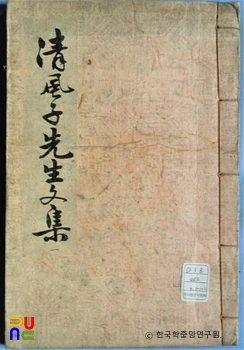 清風子先生文集
一
© 한국학중앙연구원